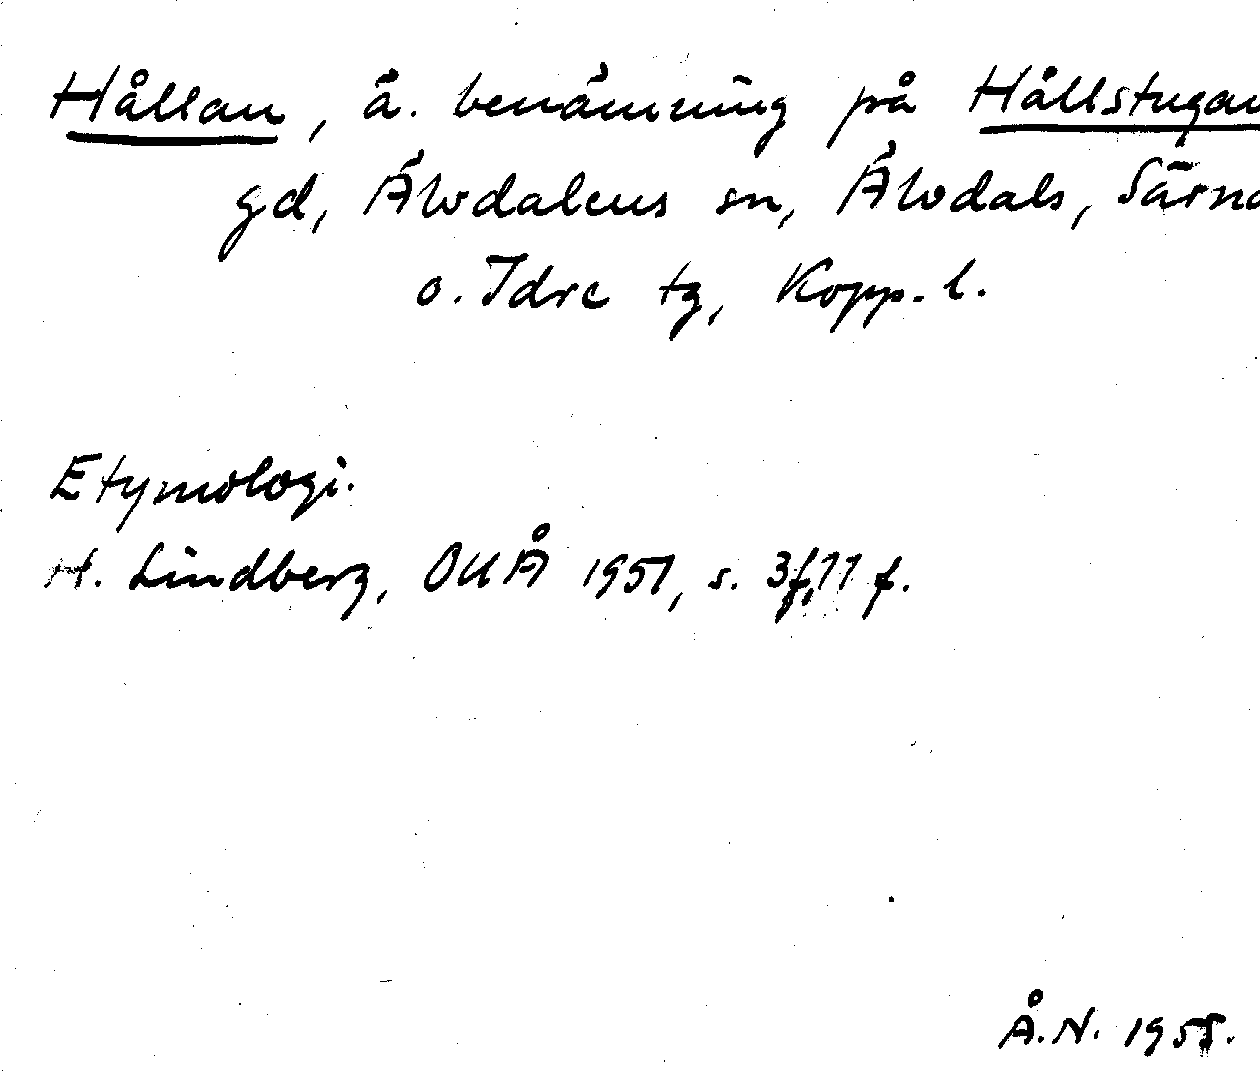 Hållan, ä. benämning på Hållstugan
gd, Älvdalens sn, Älvdals, Särna
o. Idre tg, Kopp. l.
Etymologi.
H. Lindberg, OUÅ 1951, s. 3f, 11 f.
Å.N. 1955.